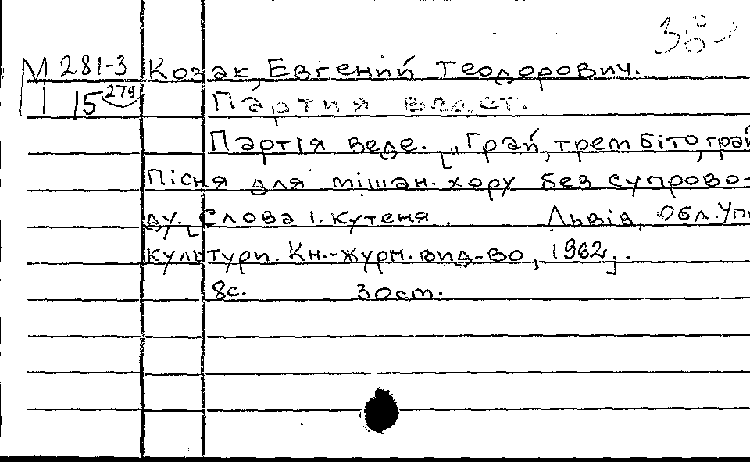 38
М 281-3 Козак, Евгений Теодорович.
15 279 Партия власт.
Партія веде. [„Грай, трембіто, грай
Пісня для мішан. хору без супрово-
ду. [Слова І. Кутеня. Львів, Обл. Упр
культури. Кн.-журн. вид-во, 1962].
8с. 30 ст.